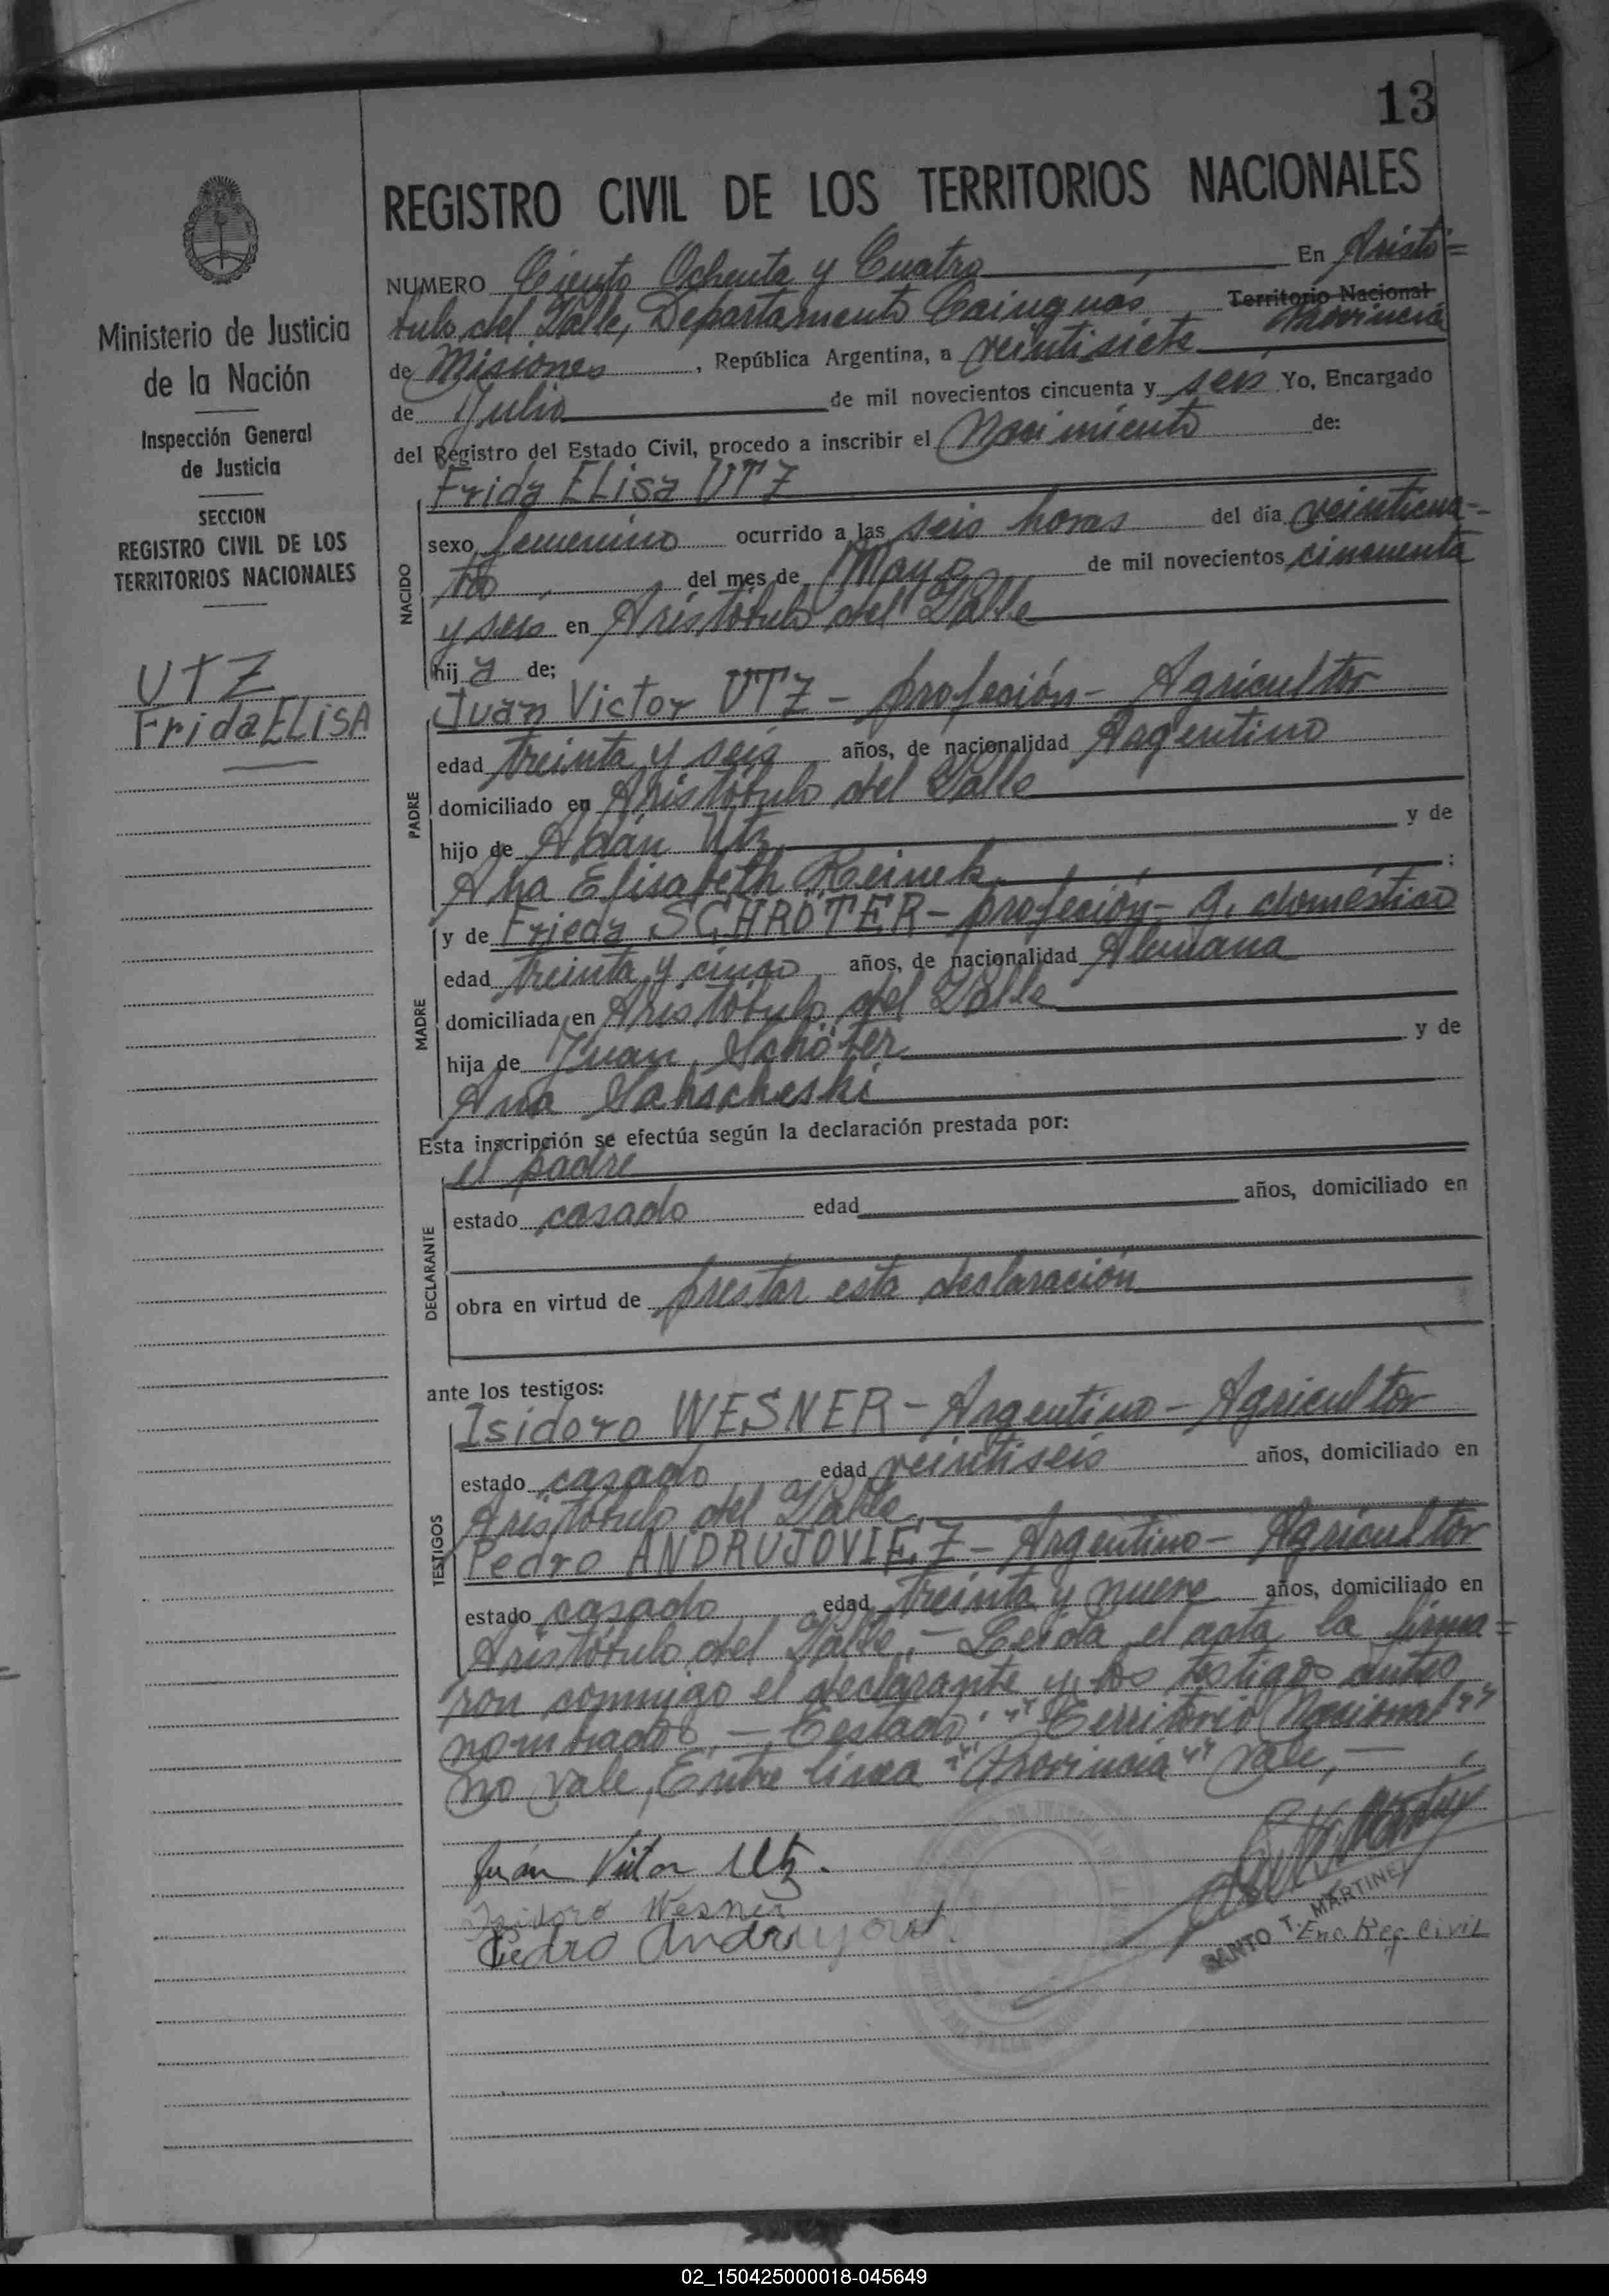 13
REGISTRO CIVIL DE LOS TERRITORIOS NACIONALES
Ministerio de Justicia
de la Nación
Inspección General
de Justicia
SECCION
REGISTRO CIVIL DE LOS
TERRITORIOS NACIONALES
UTZ
Frida ELiSA
NUMERO Ciento Ochenta y Cuatro En Aristó=
bulo del Valle, Departamento Cainguás Territorio Nacional
Provincia
de Misiones, República Argentina, a veintisiete
de Julio de mil novecientos cincuenta y seis Yo, Encargado
del Registro del Estado Civil, procedo a inscribir el Nacimiento de:
NACIDO
Frida ELisa UTZ
sexo femenino ocurrido a las seis horas del día veinticua-
tro del mes de Mayo de mil novecientos cincuenta
y seis en Aristóbulo del Valle
hija de;
PADRE
Juan Victor UTZ - profeción - Agricultor
edad treinta y seis años, de nacionalidad Argentino
domiciliado en Aristóbulo del Valle
hijo de Adán Utz y de
Ana Elisabeth Reinek;
MADRE
y de Frieda SCHRÖTER - profeción - q. doméstico
edad treinta y cinco años, de nacionalidad Alemana
domiciliada en Aristóbulo del Valle
hija de Juan Schöter y de
Ana
Esta inscripción se efectúa según la declaración prestada por:
DECLARANTE
el padre
estado casado edad años, domiciliado en
obra en virtud de prestar esta declaración
ante los testigos:
TESTIGOS
Isidoro WESNER - Argentino - Agricultor
estado casado edad veintiseis años, domiciliado en
Aristóbulo del Valle,
Pedro ANDRUJOVIEZ - Argentino - Agricultor
estado casado edad treinta y nueve años, domiciliado en
Aristóbulo del Valle. - Leida el acta la firma=
ron conmigo el declarante y los testigos antes
nombrados. - Testado: "Territorio Nacional"
no vale, Entre linea "Provincia" vale, -
Juán Victor Utz.
Isidoro Wesner
Pedro
SANTO T. MARTINEZ
Enc. Reg. Civil
02_150425000018-045649